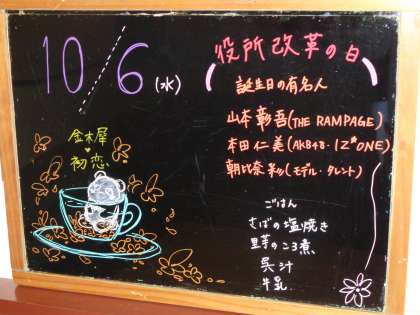 10/6(水)
役所改革の日
誕生日の有名人
山本彰吾(THE RAMPAGE)
本田仁美(AKB48・IZ*ONE)
朝比奈彩(モデル・タレント)
金木犀
初恋
ごはん
さばの塩焼き
里芋のころ煮
呉汁
牛乳